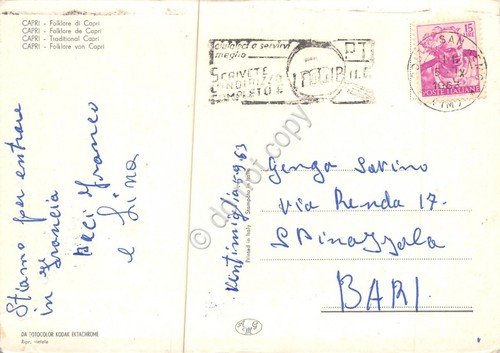 CAPRI - Folklore di Capri
CAPRI - Folklore de Capri
CAPRI - Traditional Capri
CAPRI - Folklore von Capri
Stiamo per entrare
in Francia
Franco
e Lina
DA FOTOCOLOR KODAK EKTACHROME
Ripr. vietata
aiutateci a servirvi
meglio
SCRIVETE
INDIRIZZO
COMPLETO E
PT
15
POSTE ITALIANE
Ventimiglia 5.9.63
Printed in Italy
Genga Savino
Via Renda 17.
Spinazzola
BARI.